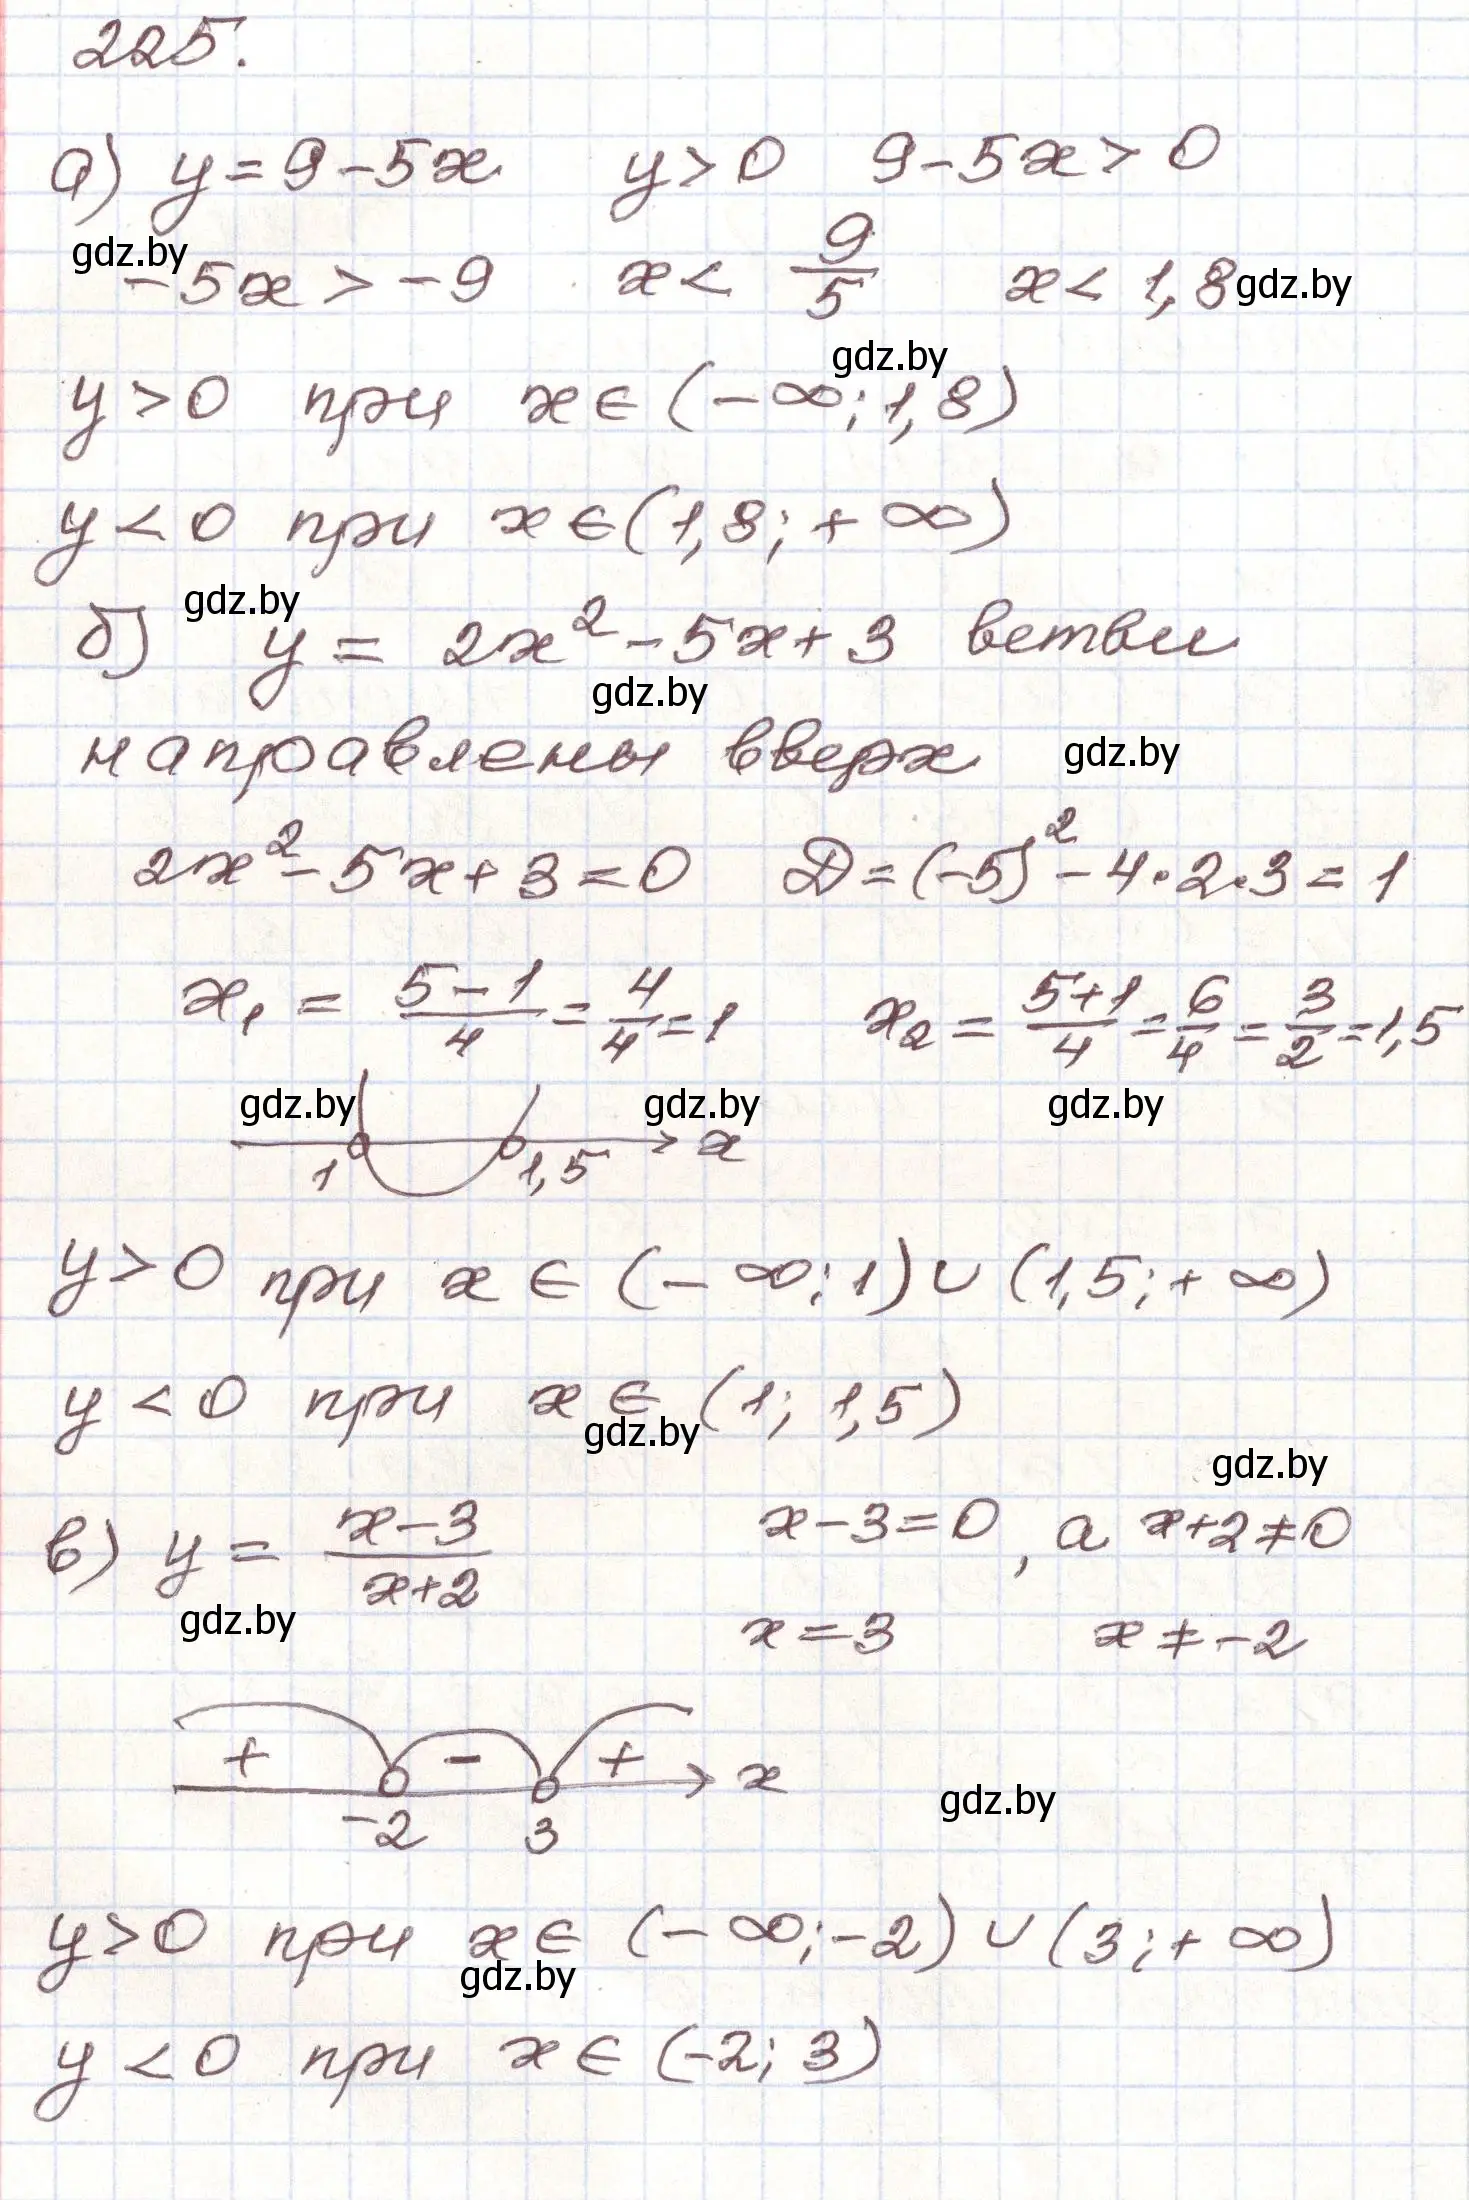 225.
а) y = 9 - 5x   y > 0   9 - 5x > 0
gdz.by
-5x > -9   x < 9/5   x < 1,8   gdz.by
gdz.by
y > 0 при x ∈ (-∞; 1,8)
y < 0 при x ∈ (1,8; +∞)
gdz.by
б) y = 2x² - 5x + 3 ветви
gdz.by
направлены вверх   gdz.by
2x² - 5x + 3 = 0   D = (-5)² - 4·2·3 = 1
x₁ = (5-1)/4 = 4/4 = 1   x₂ = (5+1)/4 = 6/4 = 3/2 = 1,5
gdz.by   gdz.by   gdz.by
1   1,5   x
y > 0 при x ∈ (-∞; 1) ∪ (1,5; +∞)
y < 0 при x ∈ (1; 1,5)
gdz.by
gdz.by
в) y = (x-3)/(x+2)   x - 3 = 0, а x + 2 ≠ 0
gdz.by   x = 3   x ≠ -2
+ - + x
-2   3   gdz.by
y > 0 при x ∈ (-∞; -2) ∪ (3; +∞)
gdz.by
y < 0 при x ∈ (-2; 3)